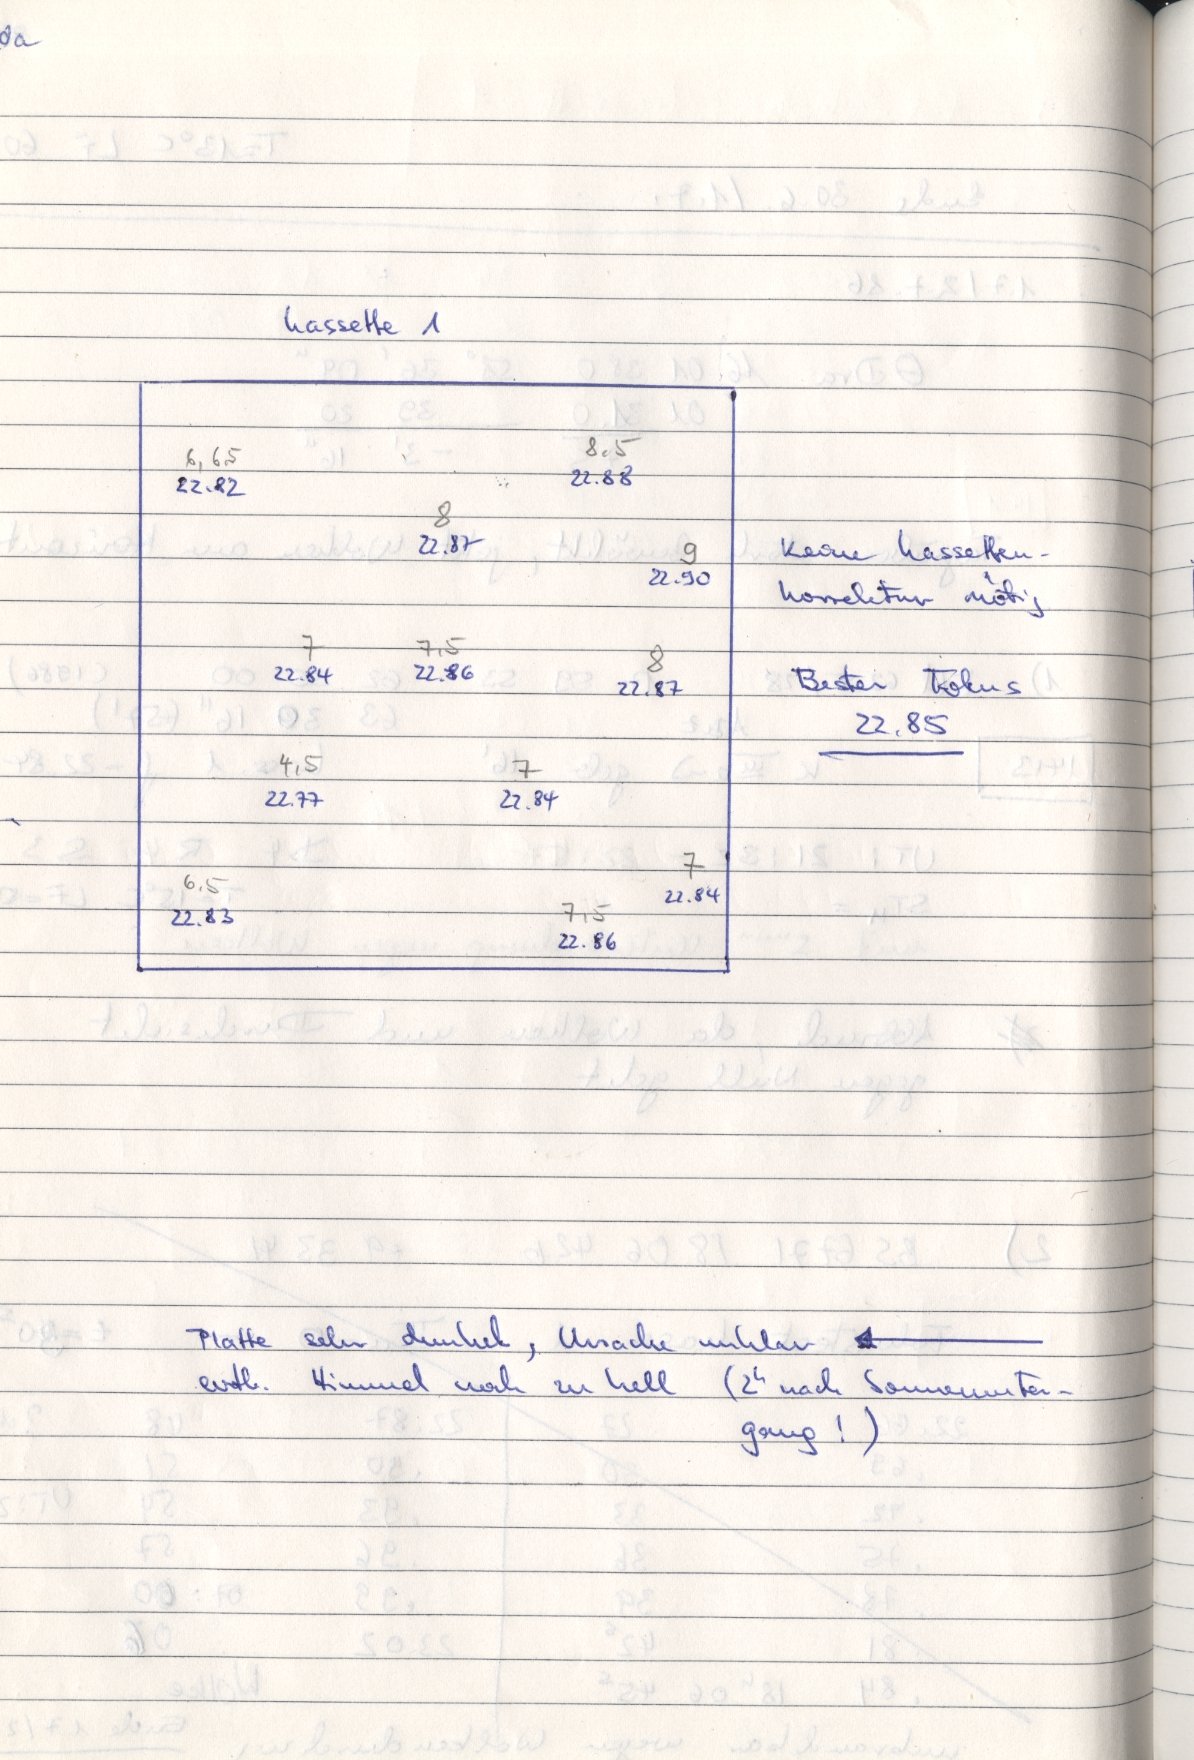 da
Kassette 1
6,65
22.82
8.5
22.88
8
22.87
9
22.90
Keine Kassetten-
korrektur nötig
7
22.84
7,5
22.86
8
22.87
Bester Fokus
22.85
4,5
22.77
7
22.84
6.5
22.83
7
22.84
7,5
22.86
Platte sehr dunkel, Ursache unklar
evtl. Himmel noch zu hell (2h nach Sonnenunter-
gang!)